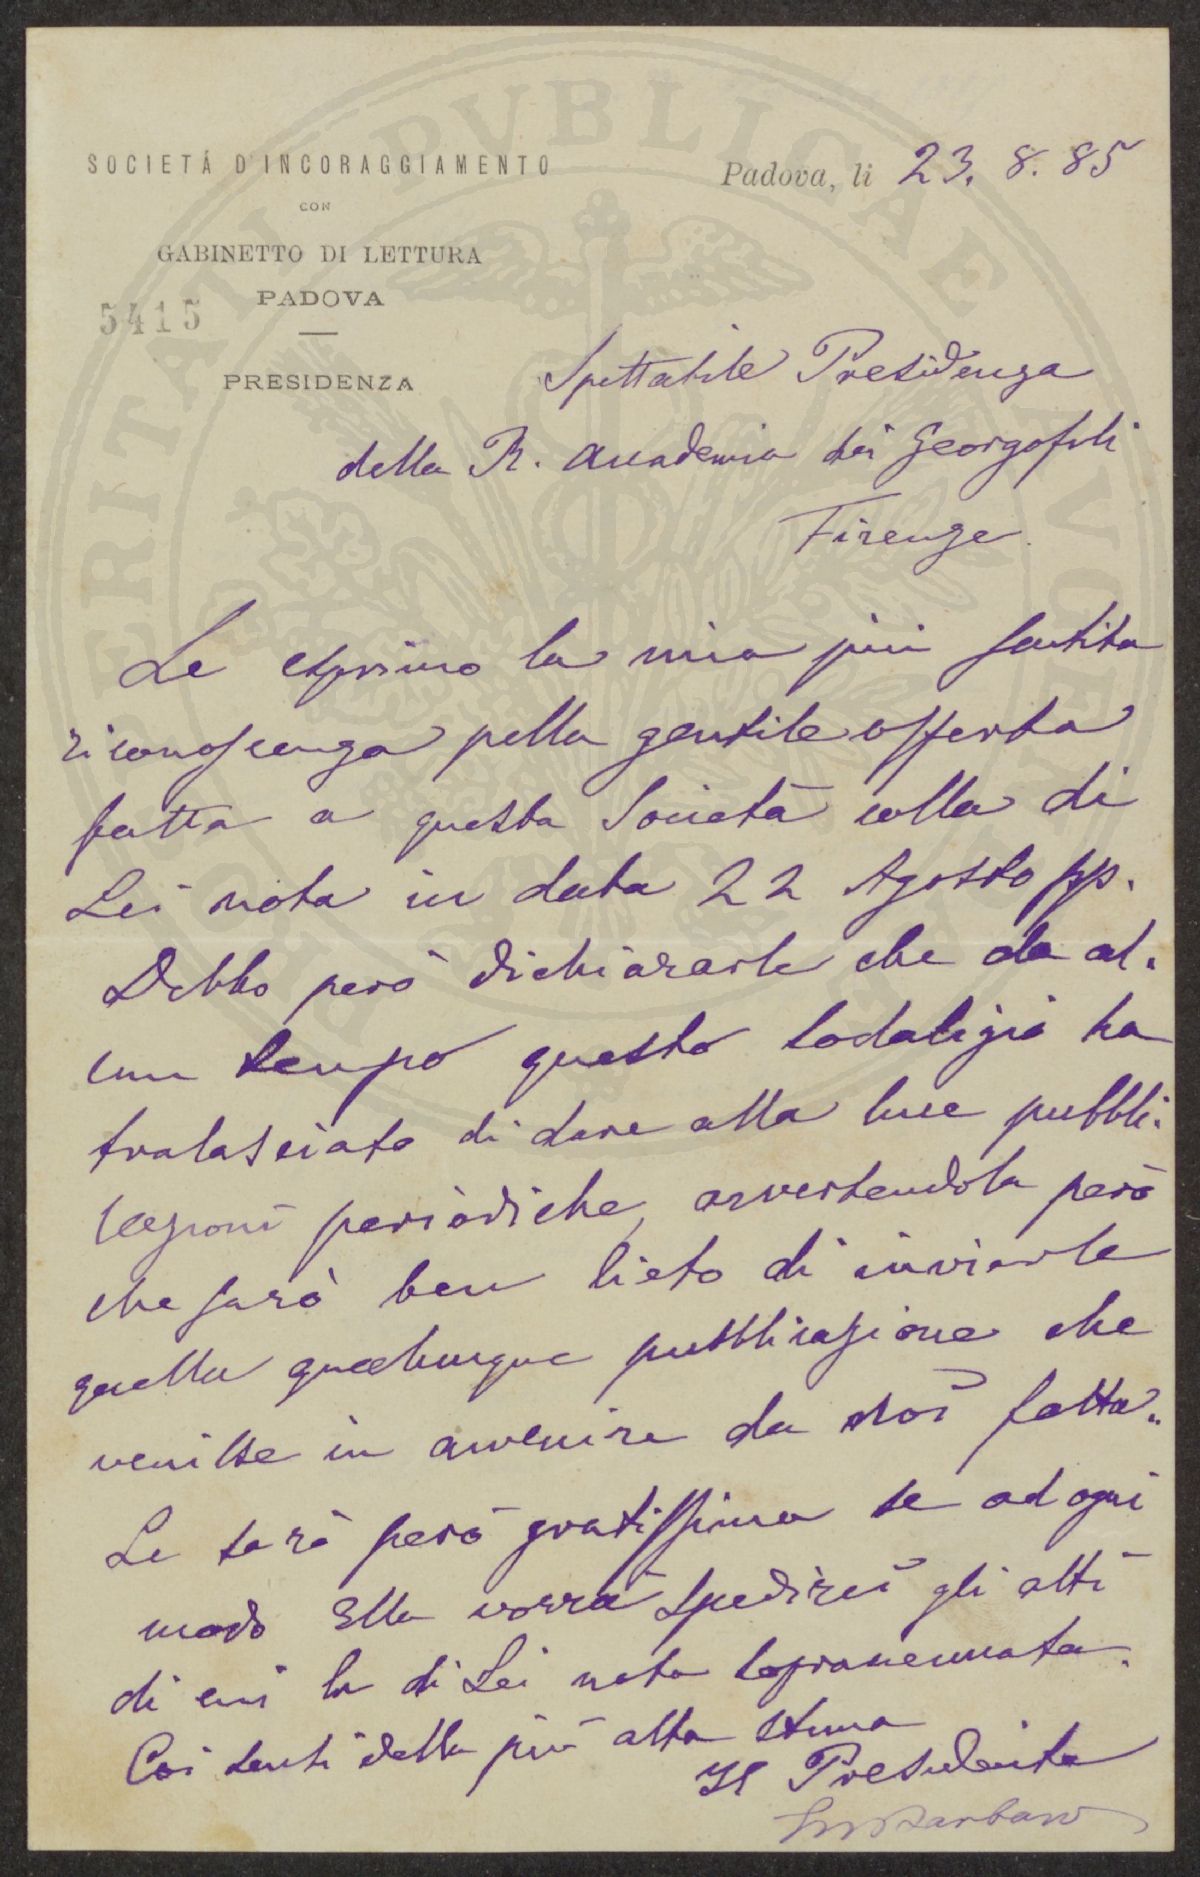 SOCIETÁ D'INCORAGGIAMENTO
CON
GABINETTO DI LETTURA
PADOVA
5415
PRESIDENZA
Padova, li 23. 8. 85
Spettabile Presidenza
della R. Accademia dei Georgofili
Firenze
Le esprimo la mia più sentita
riconoscenza pella gentile offerta
fatta a questa Società colla di
Lei nota in data 22 Agosto pp.
Debbo però dichiararle che da al-
cun tempo questo sodalizio ha
tralasciato di dare alla luce pubbli-
cazioni periodiche, avvertendola però
che sarò ben lieto di inviarle
quella qualunque pubblicazione che
venisse in avvenire da noi fatta.
Le sarò però gratissimo se ad ogni
modo Ella vorrà spedirci gli atti
di cui la di Lei nota sopracennata.
Coi sensi della più alta stima
Il Presidente
Barbaro
PVBLICAE